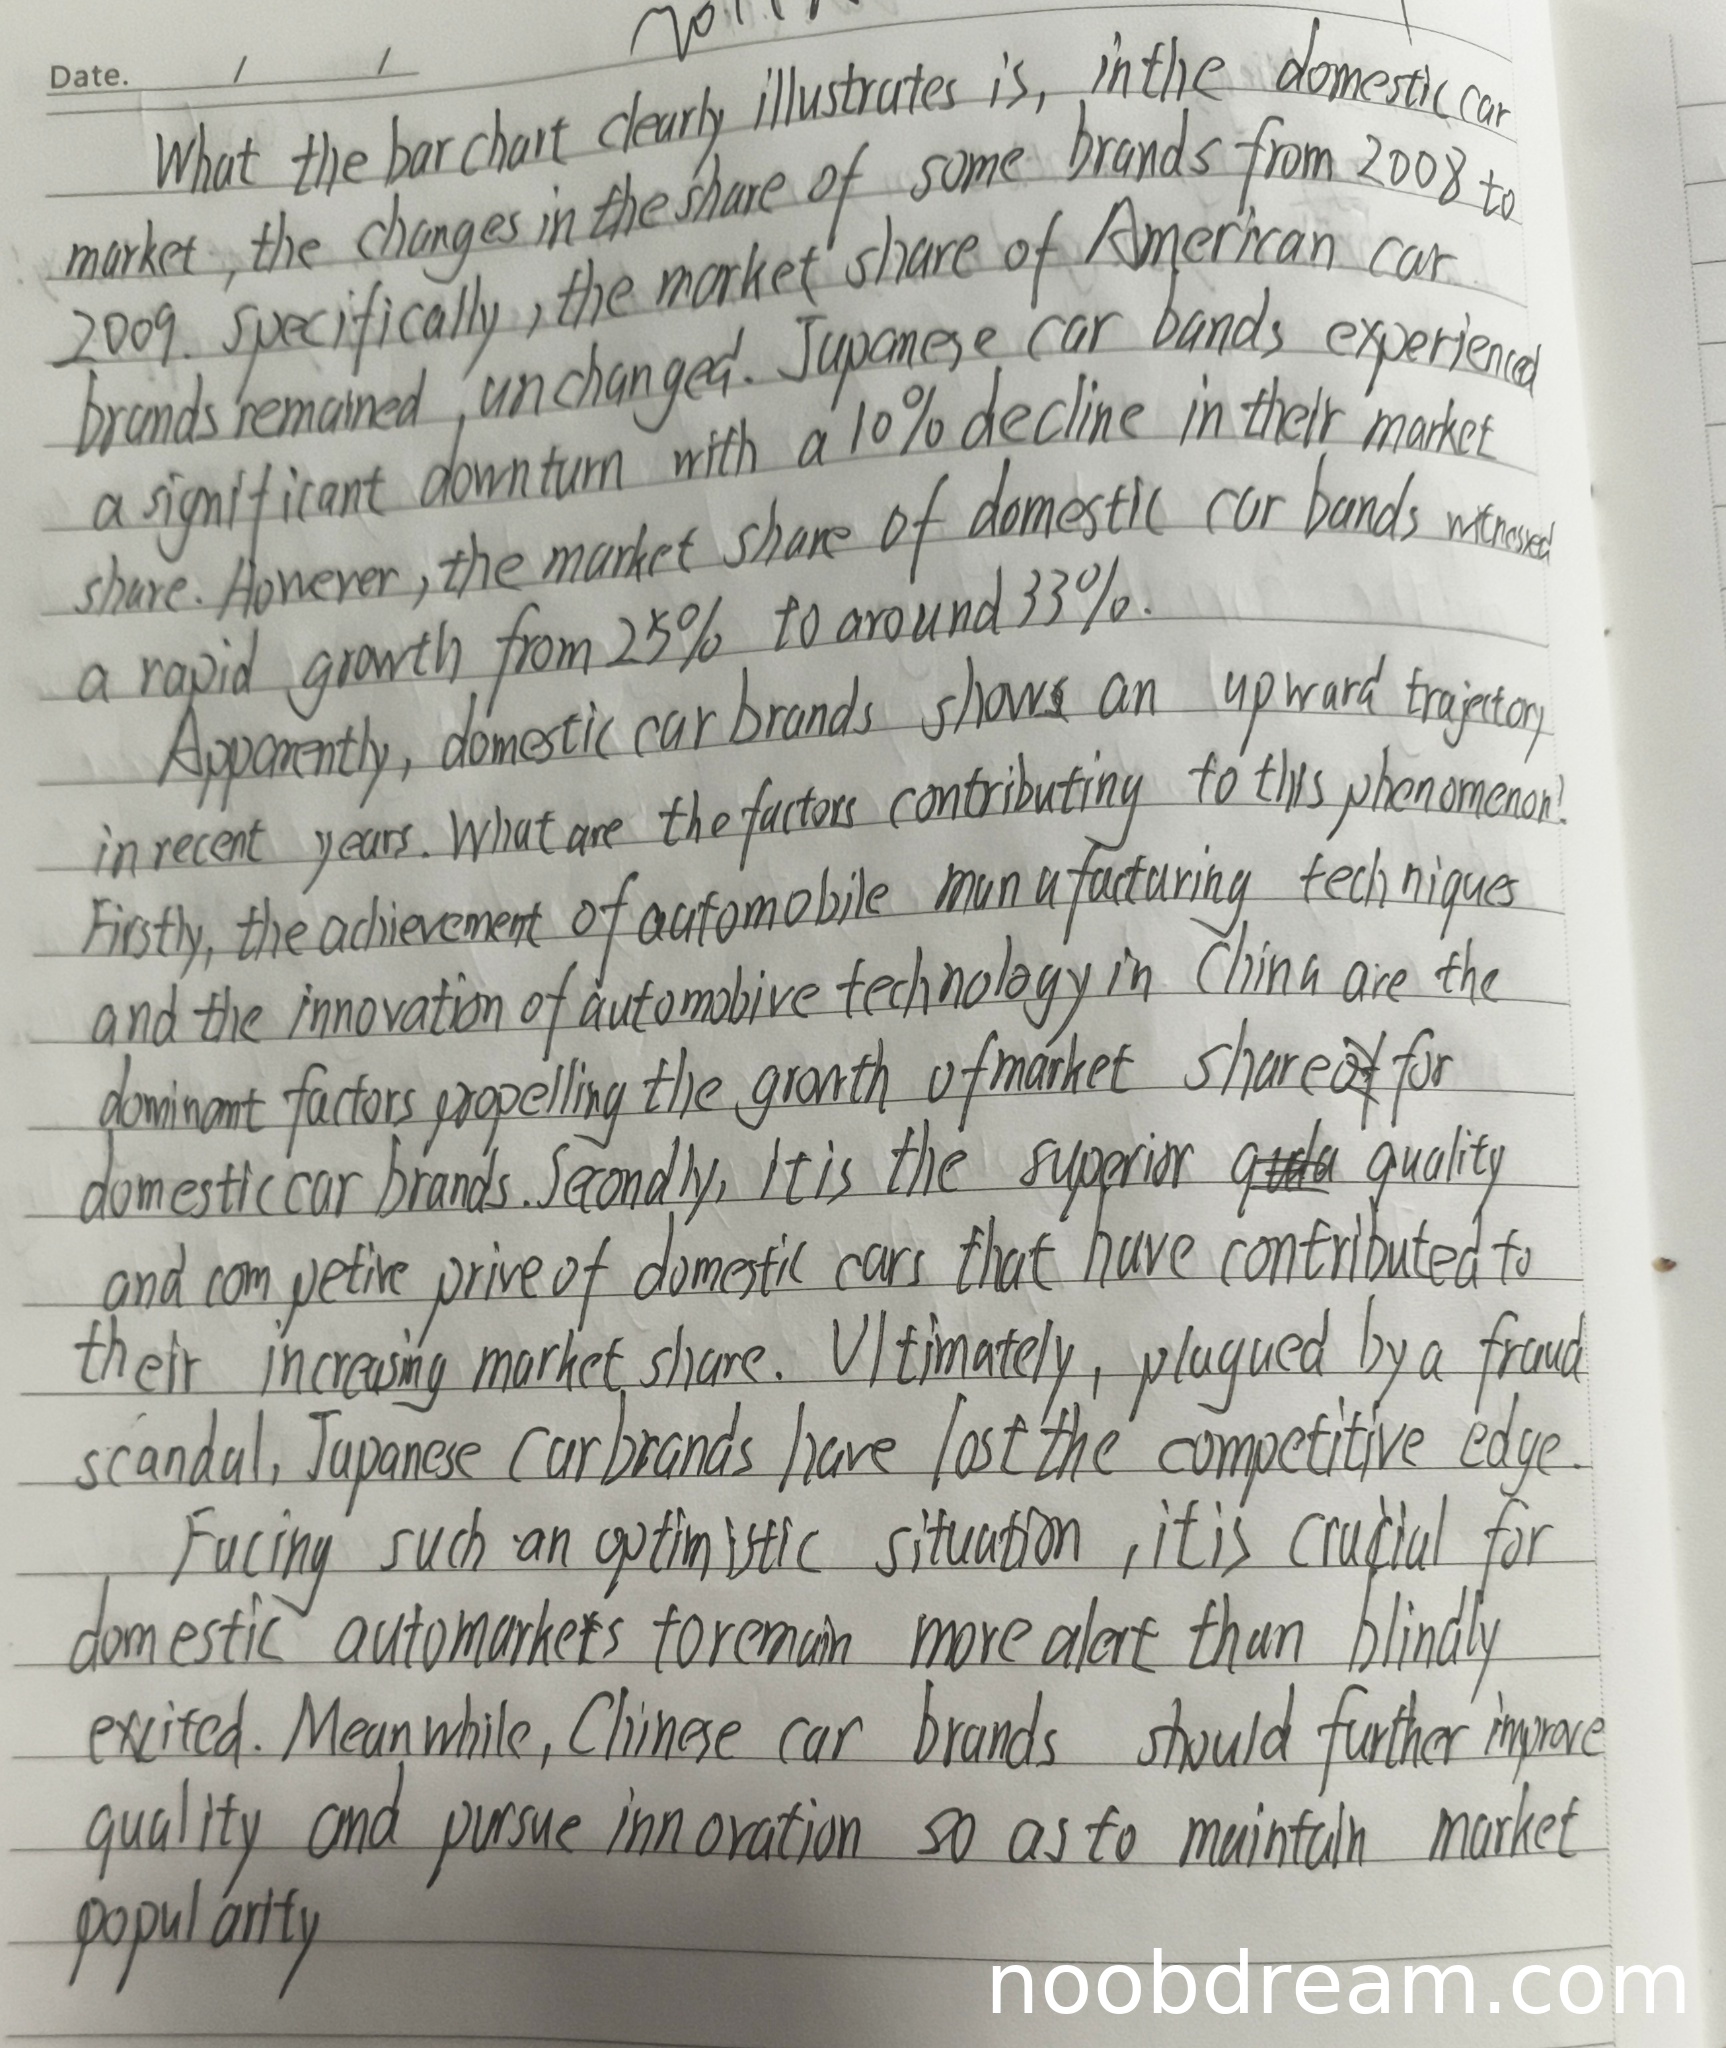 Date. / /
What the bar chart clearly illustrates is, in the domestic car
market, the changes in the share of some brands from 2008 to
2009. Specifically, the market share of American car
brands remained, unchanged. Japanese car bands experienced
a significant downturn with a 10% decline in their market
share. However, the market share of domestic car bands witnessed
a rapid growth from 25% to around 33%.
Apparently, domestic car brands shows an upward trajectory
in recent years. What are the factors contributing to this phenomenon?
Firstly, the achievement of automobile manufacturing techniques
and the innovation of automobive technology in China are the
dominant factors propelling the growth of market share for
domestic car brands. Secondly, it is the superior quality
and competive prive of domestic cars that have contributed to
their increasing market share. Ultimately, plagued by a fraud
scandal, Japanese car brands have lost the competitive edge.
Facing such an optimistic situation, it is crucial for
domestic automarkets to remain more alert than blindly
excited. Meanwhile, Chinese car brands should further improve
quality and pursue innovation so as to maintain market
popularity
noobdream.com